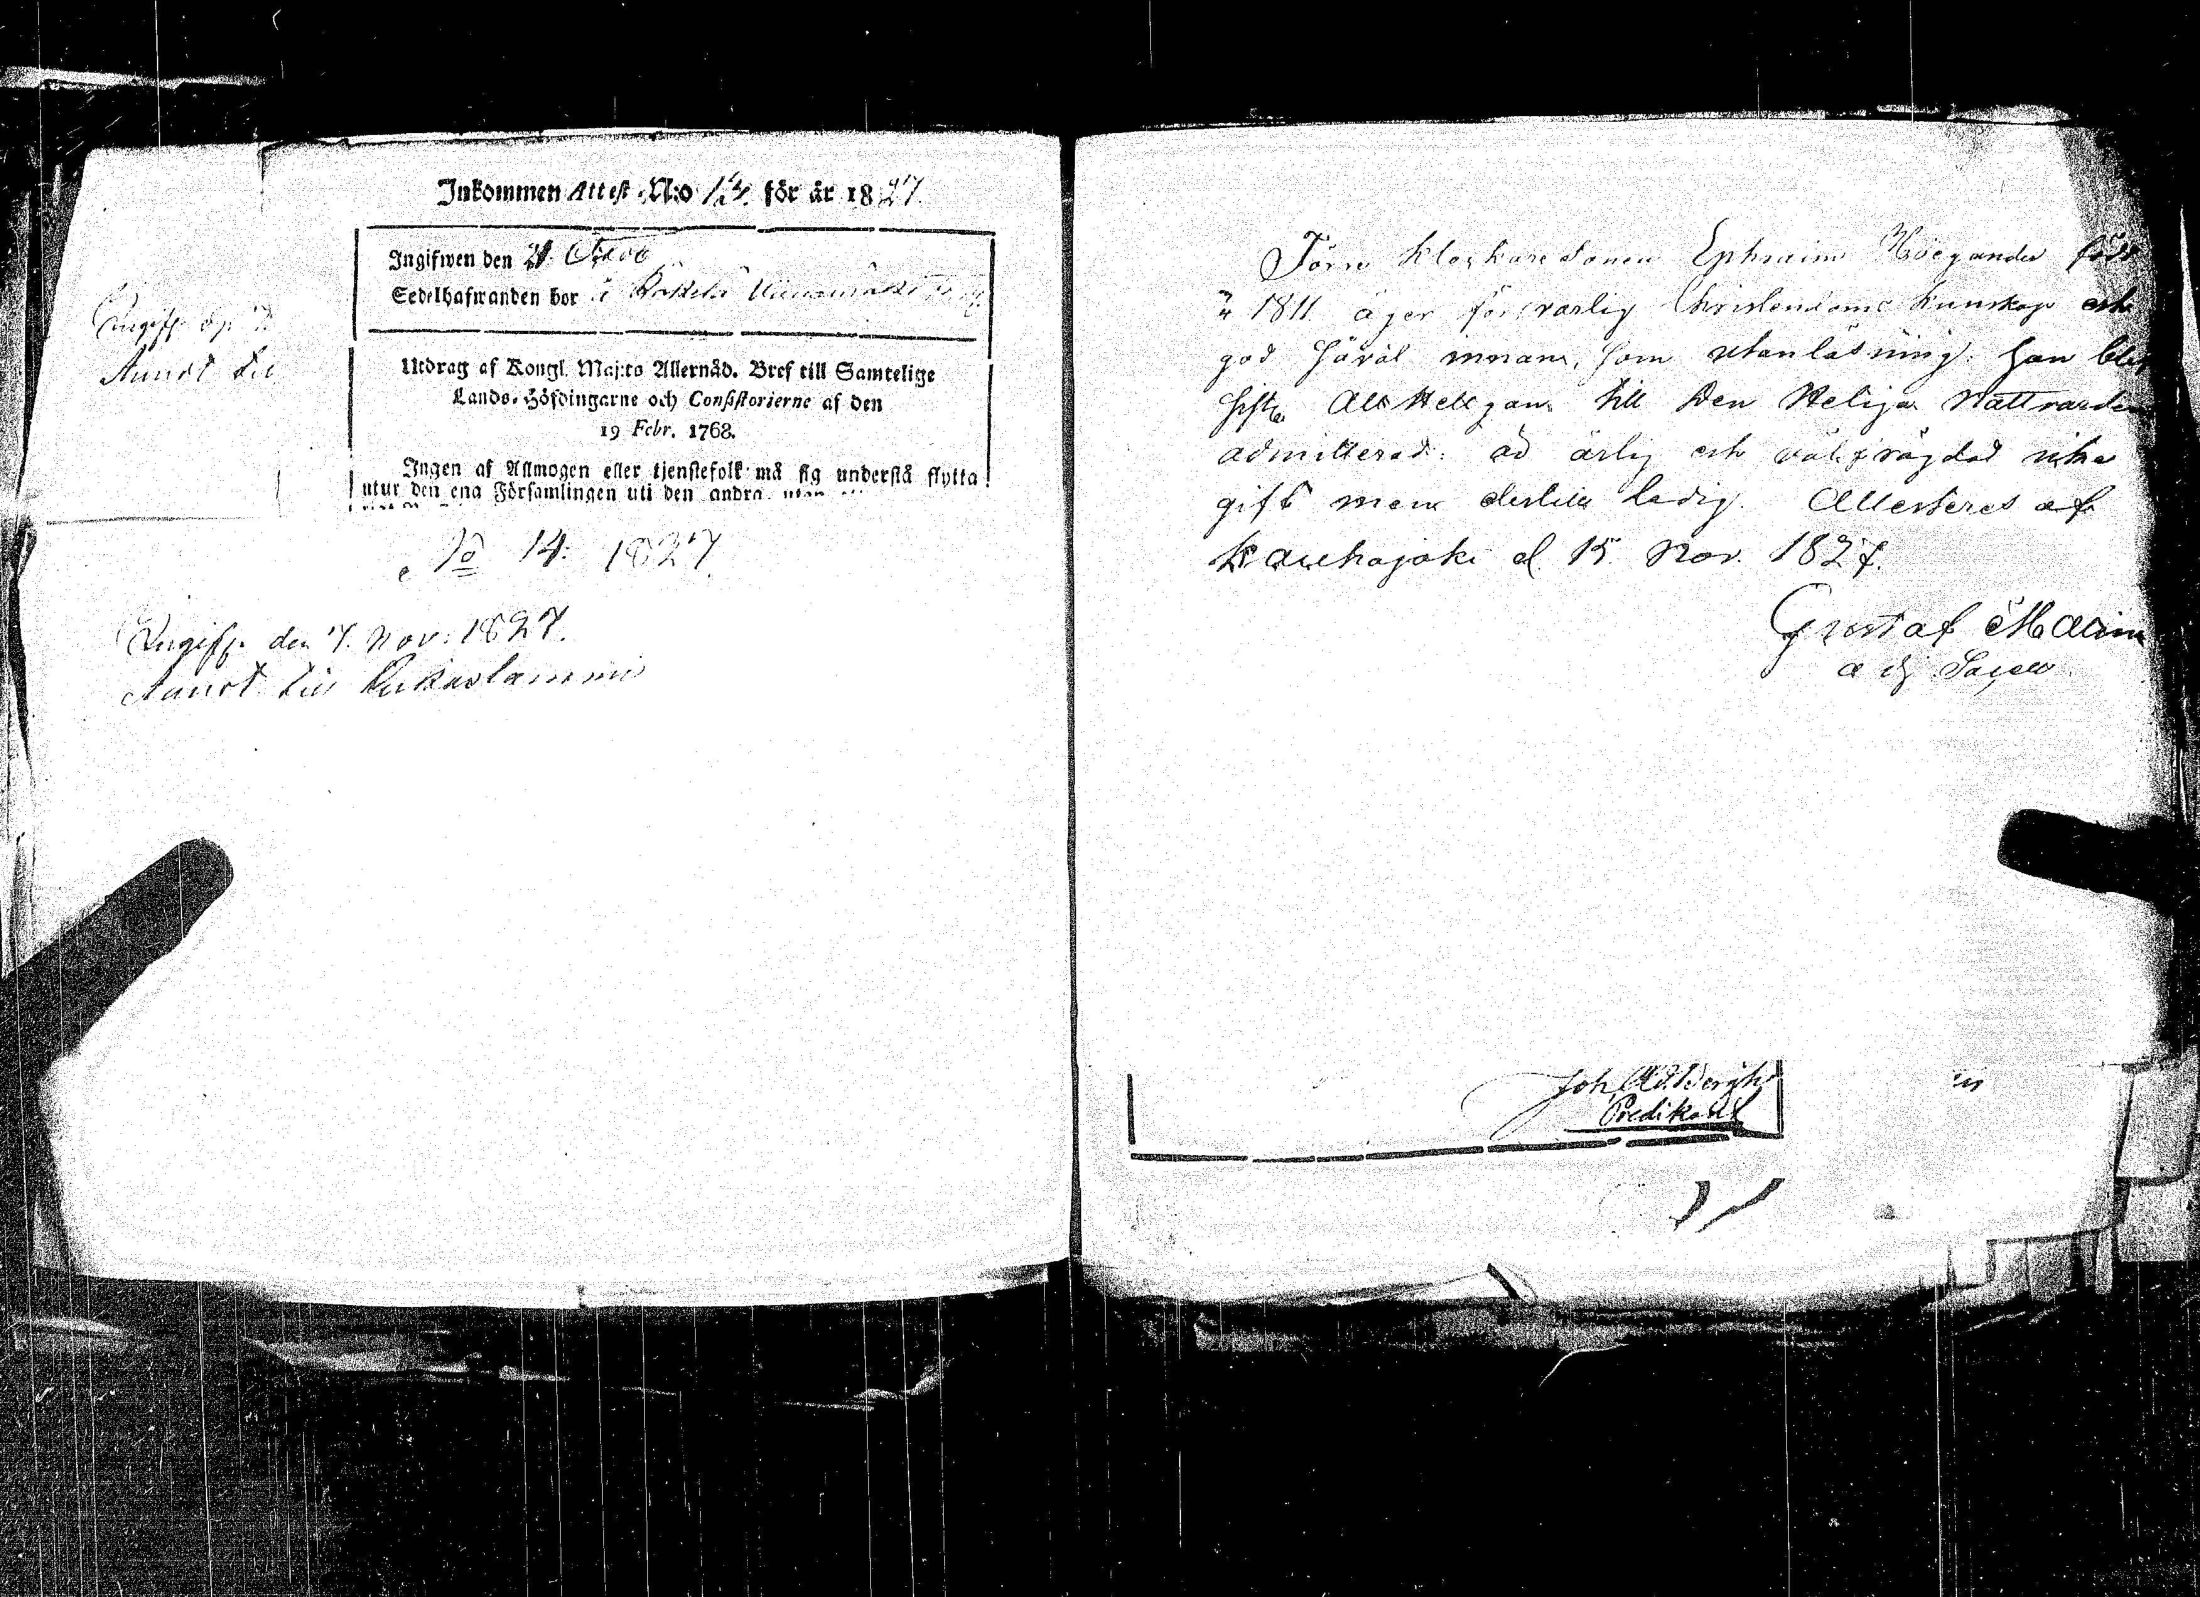 Inkommen Attest N:o 13. för år 1827.
Ingifwen den
Sedelhafwanden bor å
Utdrag af Kongl. Maj:ts Allernåd. Bref till Samtelige
Lands-Höfdingarne och Consistorierne af den
19 Febr. 1768.
Ingen af Allmogen eller tjenstefolk må sig understå flytta
utur den ena Församlingen uti den andra, utan
Ingifv.
Aunot till
No 14: 1827.
Ingifv. den 7. Nov: 1827.
Aunot till
Förre Klockare Sonen Ephraim Höegander född
1811 äger försvarlig Christendoms kunskap och
god såväl innan, som utanläsning. Han blef
sista Allhelgan till Den Heliga Nattvarden
admitterad: är ärlig och välfrägdad icke
gift men ledig. Attesteras af
Kauhajoki d. 15 Nov. 1827.
Gustaf
adj. Sacell.
Joh. Ad. Bergh
Predikant